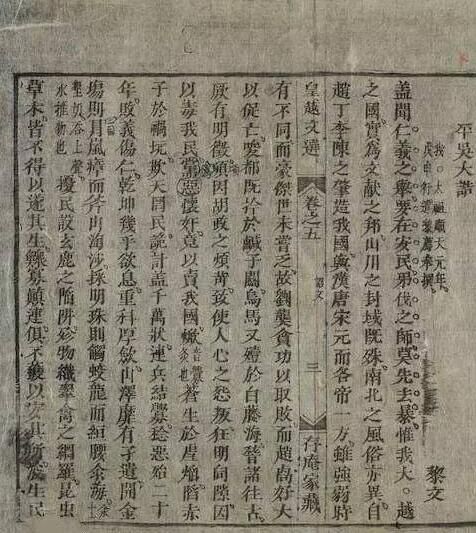 平吳大誥
我 太祖順天元年
戊申行遣黎廌奉撰
黎文
蓋聞仁義之舉要在安民弔伐之師莫先去暴惟我大越
之國實為文獻之邦山川之封域既殊南北之風俗亦異自
趙丁李陳之肇造我國與漢唐宋元而各帝一方雖強弱時
皇越文選 卷之五 誥文 三 存庵家藏
有不同而豪傑世未嘗乏故劉龔貪功以取敗而趙禼好大
以促亡唆都既擒於鹹子關烏馬又殪於白藤海嵇諸往古
厥有明徵頃因胡政之煩苛致使人心之怨叛狂明伺隙因
以毒我民黨惡懷奸竟以賣我國焮蒼生於虐焰陷赤
子於禍坑欺天罔民詭計蓋千萬狀連兵結釁稔惡殆二十
年敗義傷仁乾坤幾乎欲息重科厚斂山澤靡有孑遺開金
場則冒嵐瘴而斧山淘沙採明珠則觸蛟龍而絙腰汆海
谷上聲
水推物也
擾民設玄鹿之陷阱殄物織翠禽之網羅昆虫
草木皆不得以遂其生鰥寡顛連俱不獲以安其所浚生民